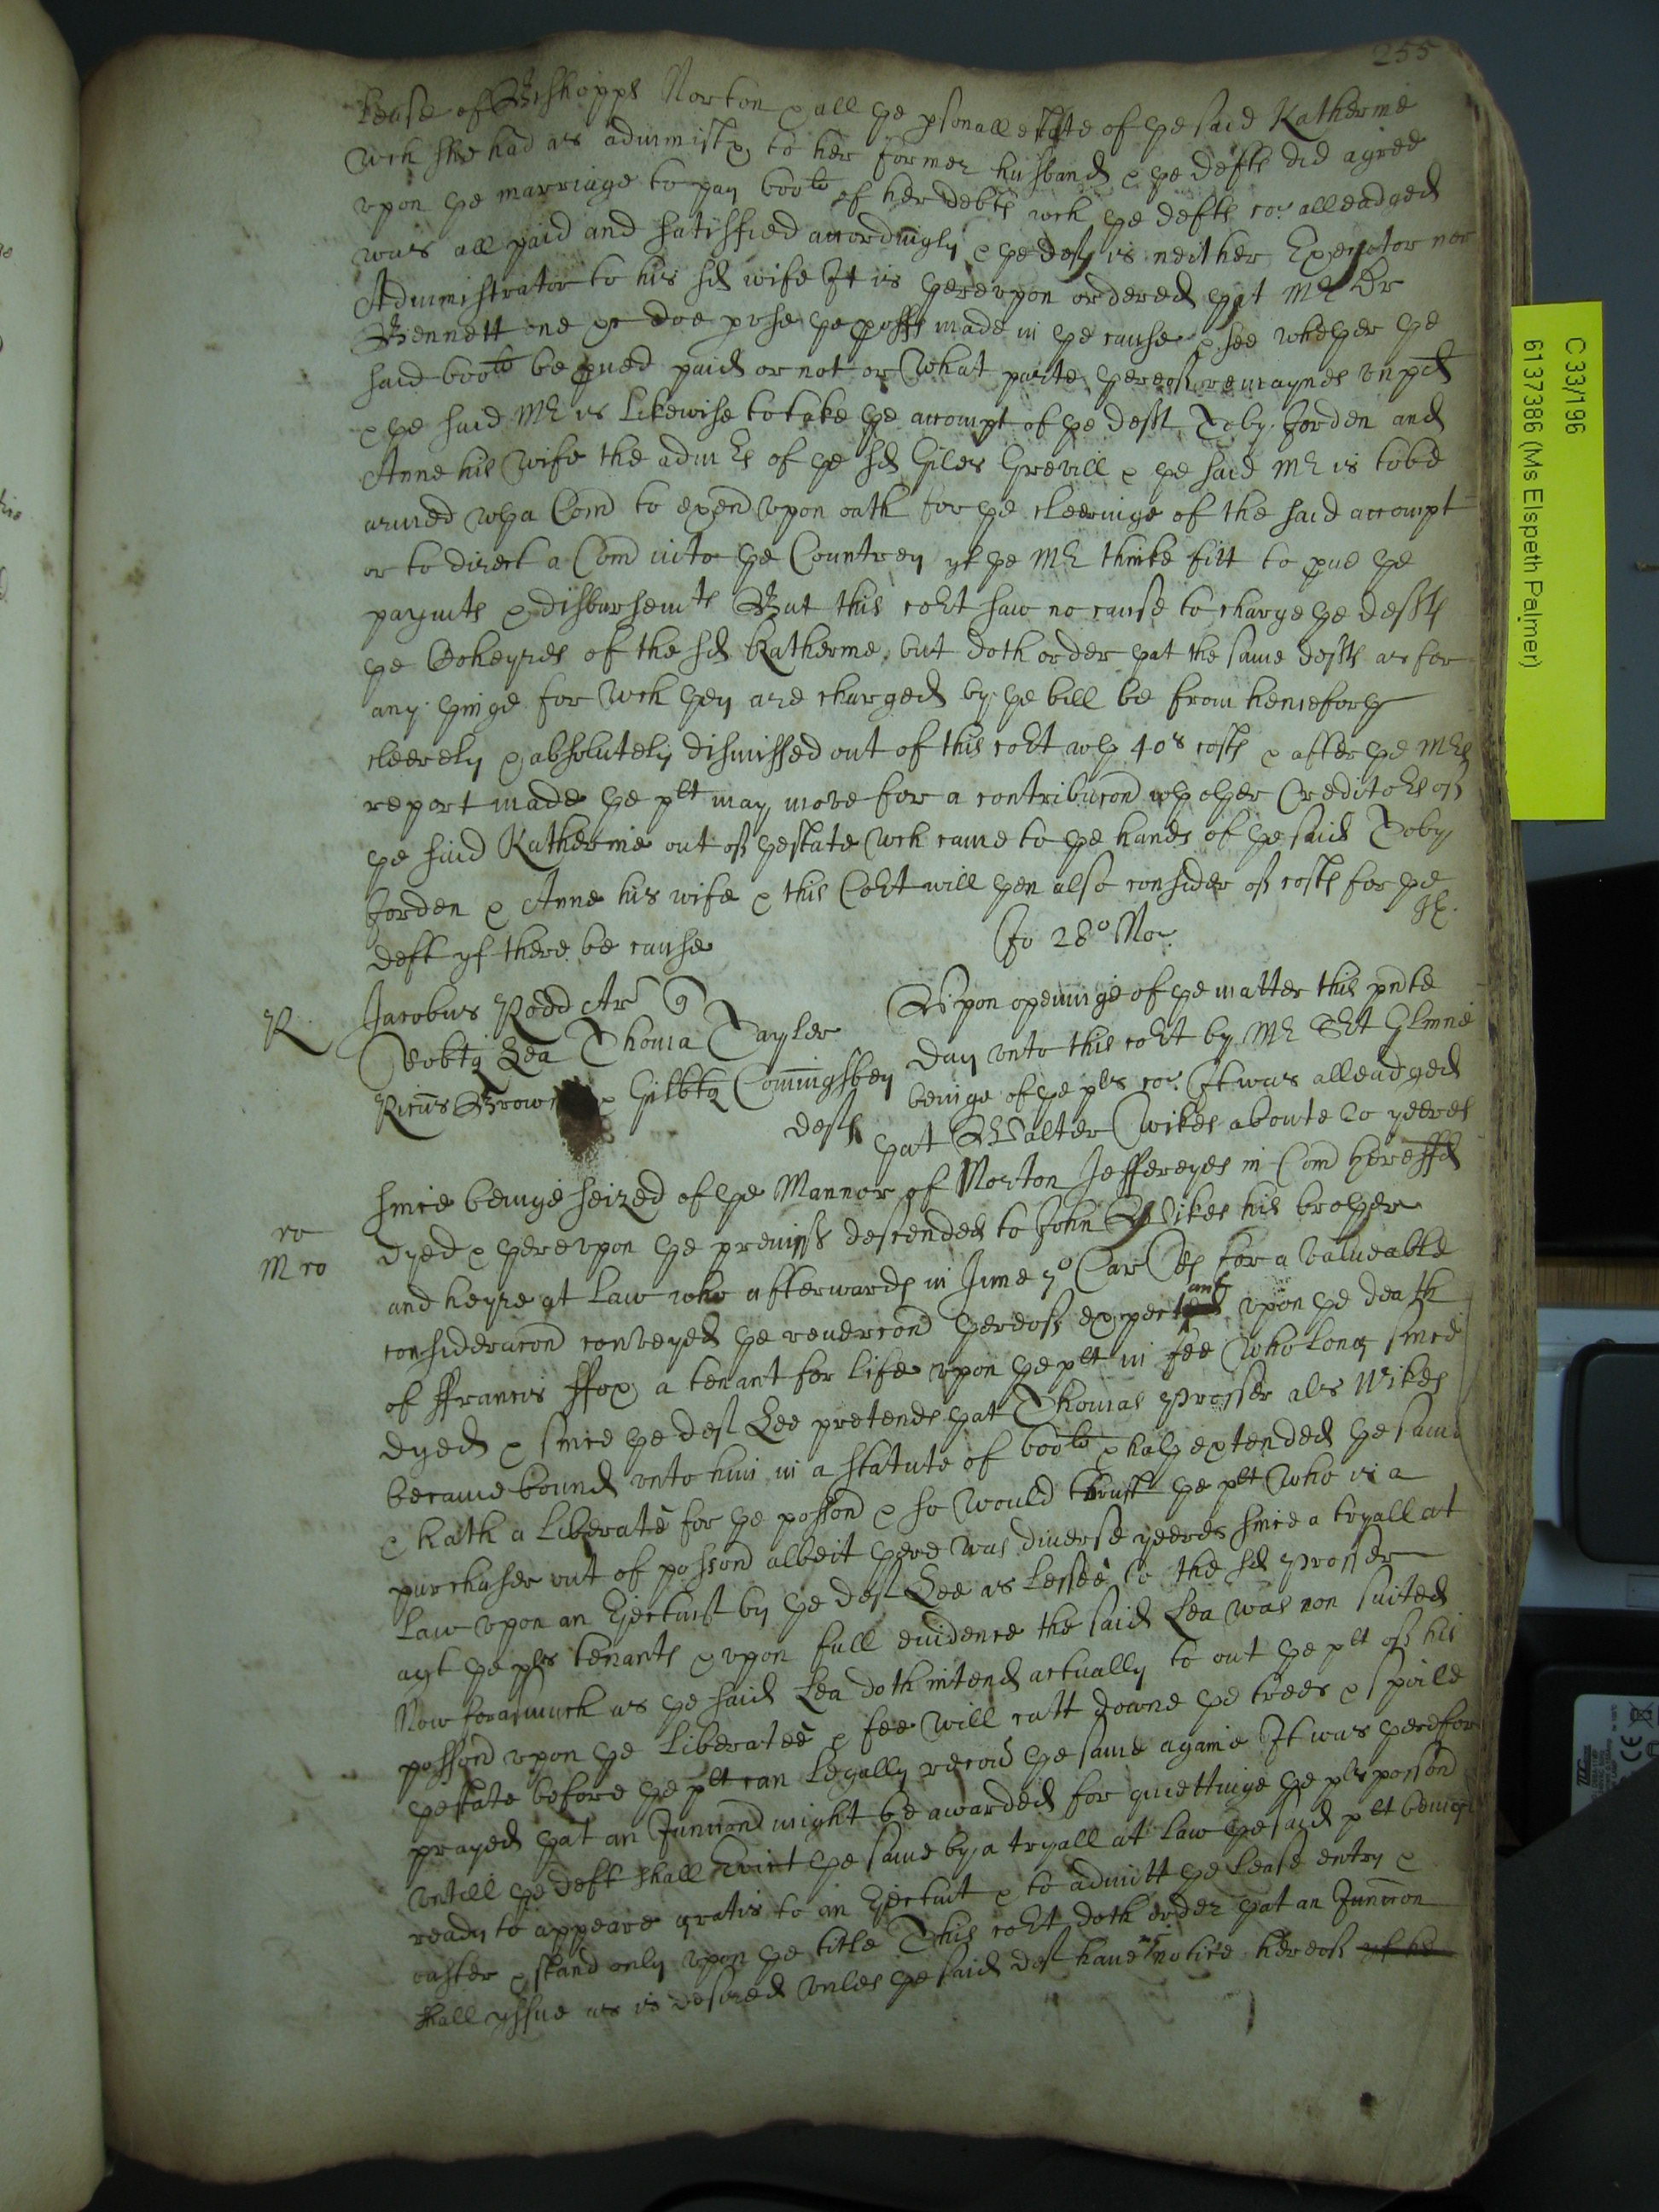 255
Lease of Bishopps Norton & all ye psonall estate of ye said Katherine
wch she had as administx to her former husband & ye defts did agree
vpon ye marriage to pay 600li of her debts wch ye defts co: alleadged
was all paid and satisfied accordingly & ye deft is neither Executor nor
Administrator to his sd wife It is yerevpon ordered yat Mr Dr
Bennett one &c doe pvse ye pofts made in ye cause & see wheyer ye
said 600li be pued paid or not or what parte yereof remaynes vnpd
& ye said Mr is likewise to take ye accompt of ye deft Toby Jorden and
Anne his wife the admrs of ye sd Giles Grevill & ye said Mr is to be
armed wth a Comn to exn vpon oath for ye cleeringe of the said accompt
or to direct a Comn into ye Countrey yf ye Mr thinke fitt to pue ye
paymts & disbursemts But this cort saw no cause to charge ye defts
ye Coheyres of the sd Katherine, but doth order yat the same defts as for
any yinge for wch yey are charged by ye bill be from henceforth
cleerely & absolutely dismissed out of this cort wth 40s costs & after ye Mrs
report made ye plt may move for a contribucon wth oyer Creditors of
ye said Katherine out of yestate wch came to ye hands of ye said Toby
Jorden & Anne his wife & this Cort will yen also consider of costs for ye
deft yf there be cause
Jo 28o No:
R Jacobus Rodd Ar q
Tobtq Lea Thoma Tayler
Ricus Browne & Gilbtq Conningsbey
defts
Vpon openinge of ye matter this pnte
day vnto this cort by Mr Srt Glinne
beinge of ye pls co: It was alleadged
yat Walter Wikes aboute 20 yeeres
since beinge seized of ye Mannor of Norton Jeffereyes in Com Hereffd
ro
M ro
dyed & yerevpon ye premiss descended to John Wikes his broyer
and heyre at Law who afterwards in June 7o Car Rs for a valueable
consideracon conveyed ye revercon yereof expectant vpon ye death
of Francis ffox a tenant for life vpon ye plt in fee who long since
dyed & since ye deft Lee pretends yat Thomas Prosser als Wikes
became bound vnto him in a statute of 600li & hath extended ye same
& hath a Liberate for ye posson & so would thrust ye plt who is a
purchaser out of posson albeit yere was diverse yeeres since a tryall at
Law vpon an Ejectmt by ye deft Lee as Lessee to the sd Prosser
agt ye pls tenants & vpon full evidence the said Lea was non suited
Now forasmuch as ye said Lea doth intend actually to out ye plt of his
posson vpon ye Liberatee & fee will cutt downe ye trees & spoile
yestate before ye plt can Legally recov ye same againe It was yerefor
prayed yat an Junccon might be awarded for quiettinge ye pls posson
vntill ye deft shall Evict ye same by a tryall at Law ye said plt beinge
ready to appeare gratis to an Ejectmt & to admitt ye Lease entry &
ouster & stand only vpon ye title This cort doth order yat an Junccon
shall yssue as is desired vnles ye said deft have notice hereof
C 33/196
6137386 (Ms Elspeth Palmer)